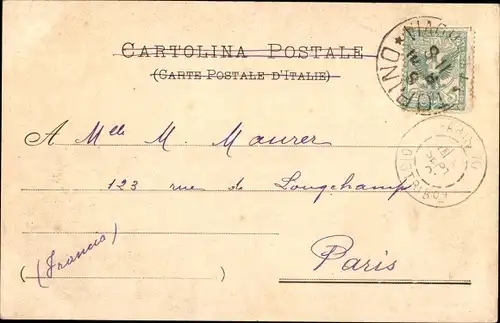 CARTOLINA POSTALE
(CARTE POSTALE D'ITALIE)
TORINO
A Mlle M. Maurer
123 rue de Longchamp
(Francia)
Paris